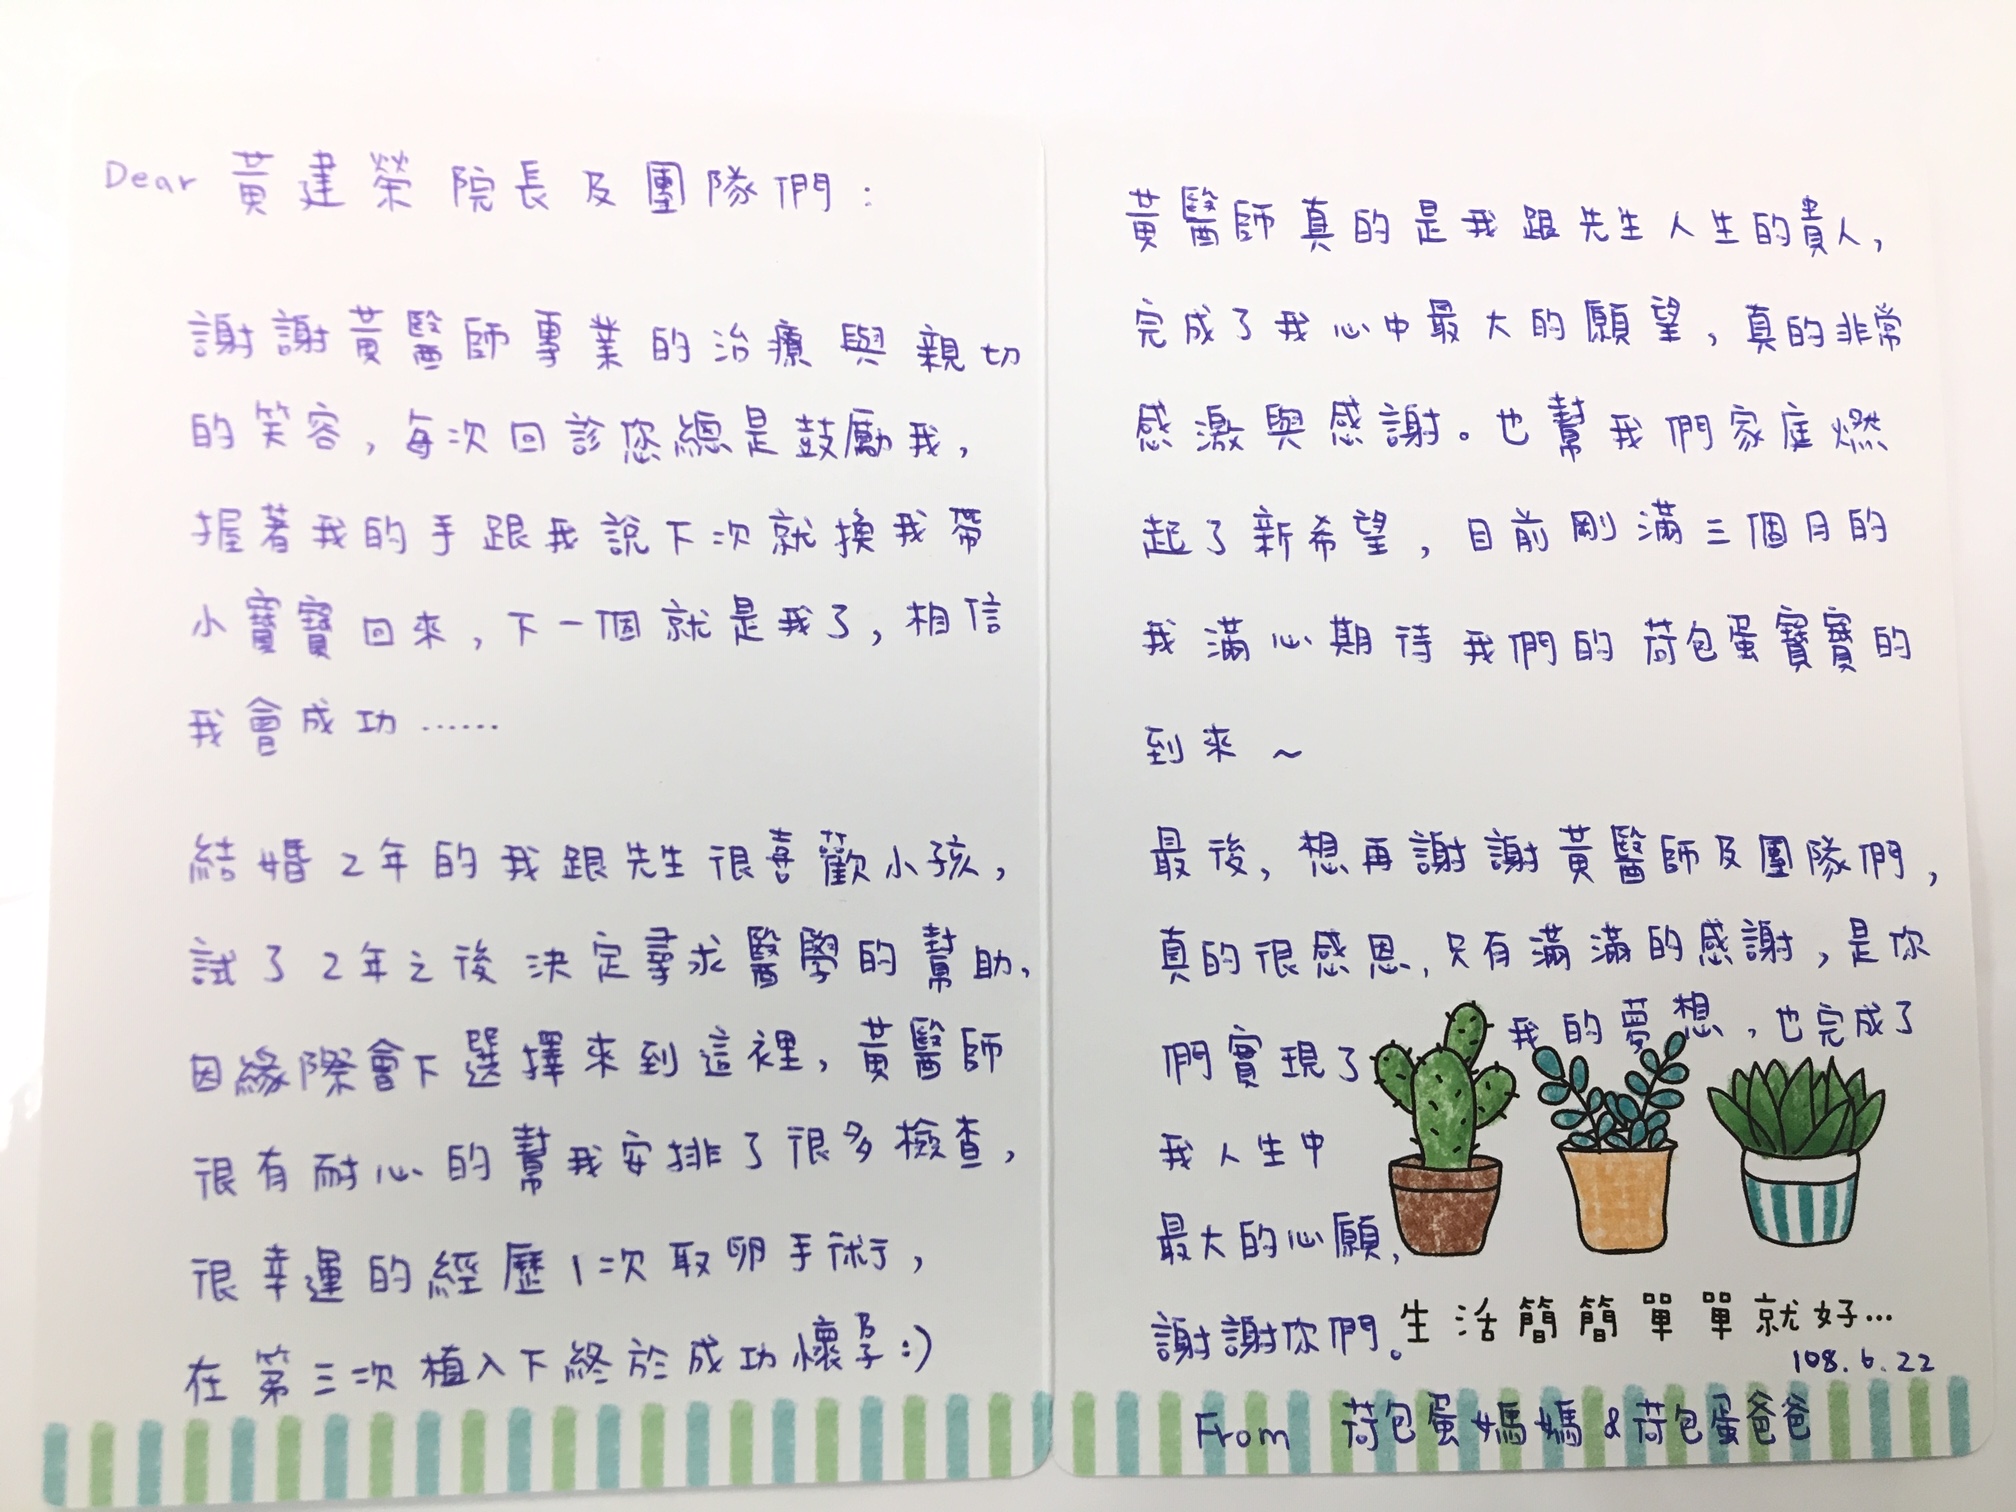 Dear 黃建榮院長及團隊們:
謝謝黃醫師專業的治療與親切
的笑容,每次回診您總是鼓勵我,
握著我的手跟我說下次就換我帶
小寶寶回來,下一個就是我了,相信
我會成功……
結婚2年的我跟先生很喜歡小孩,
試了2年之後決定尋求醫學的幫助,
因緣際會下選擇來到這裡,黃醫師
很有耐心的幫我安排了很多檢查,
很幸運的經歷1次取卵手術,
在第三次植入下終於成功懷孕:)
黃醫師真的是我跟先生人生的貴人,
完成了我心中最大的願望,真的非常
感激與感謝。也幫我們家庭燃
起了新希望,目前剛滿三個月的
我滿心期待我們的荷包蛋寶寶的
到來~
最後,想再謝謝黃醫師及團隊們,
真的很感恩,只有滿滿的感謝,是你
們實現了我的夢想,也完成了
我人生中
最大的心願,
謝謝你們。
生活簡簡單單就好...
108.6.22
From 荷包蛋媽媽&荷包蛋爸爸